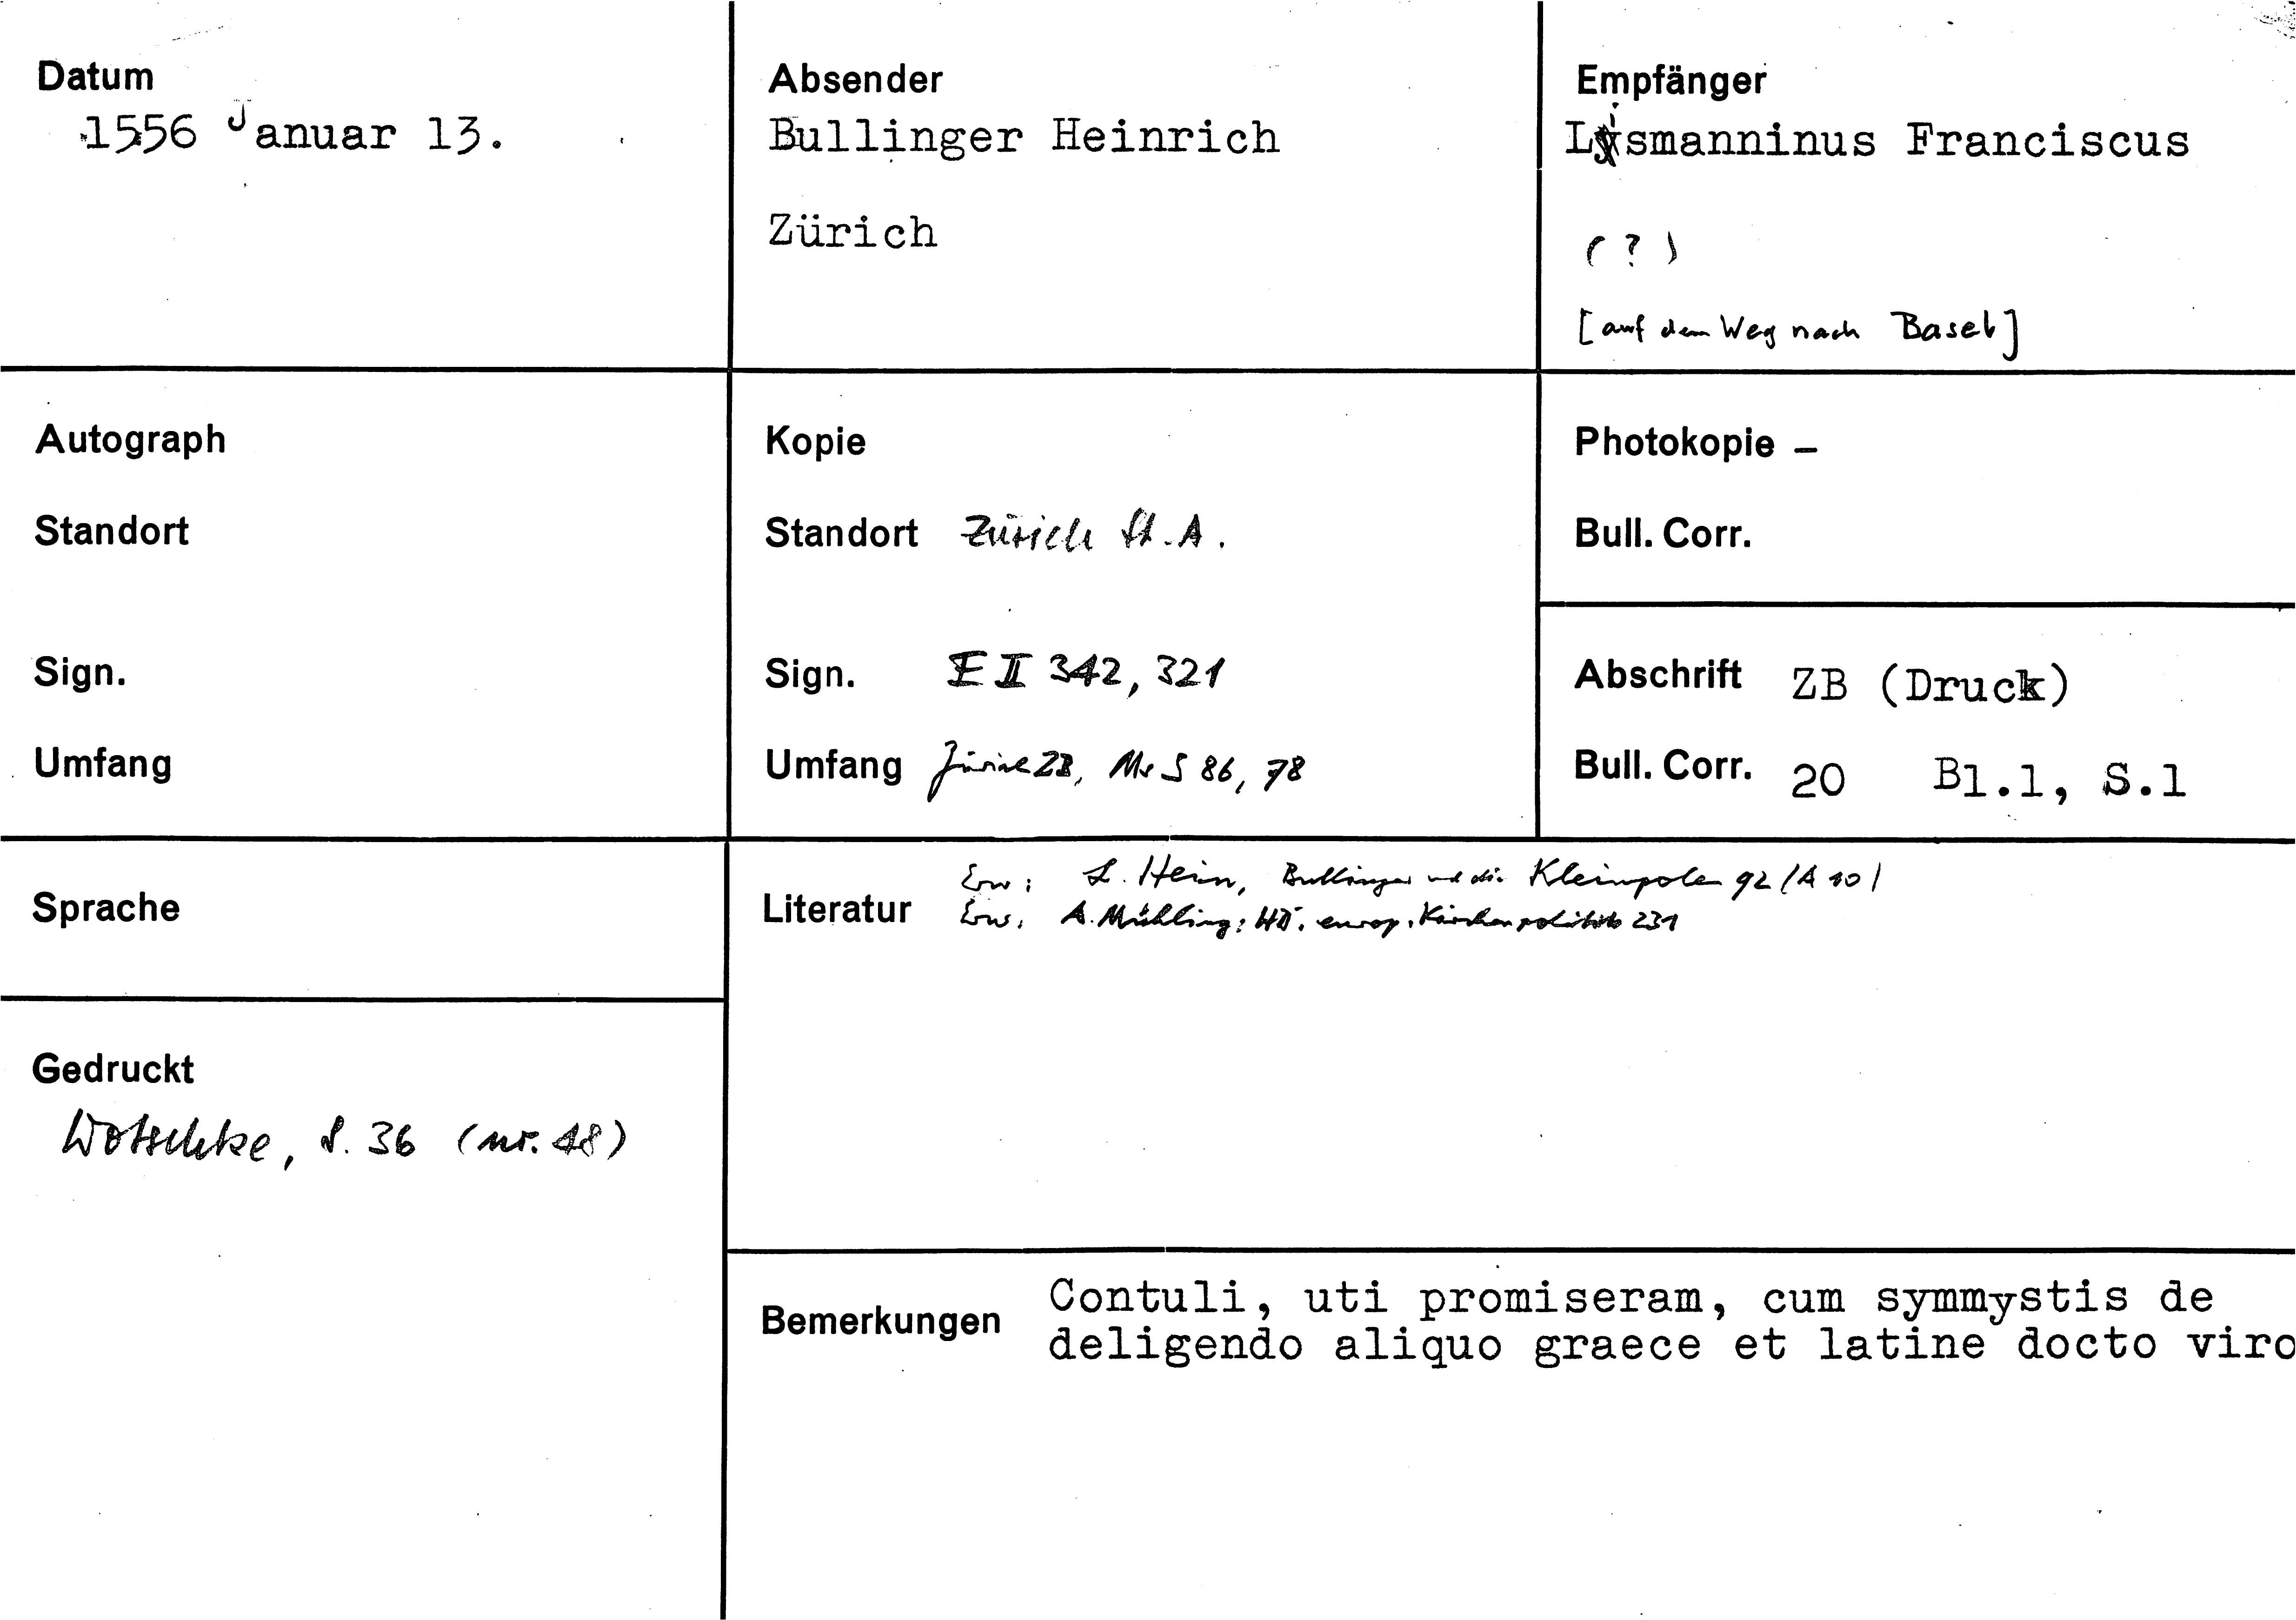 Datum
1556 Januar 13.
Absender
Bullinger Heinrich
Zürich
Empfänger
Lismanninus Franciscus
(?)
[auf dem Weg nach Basel]
Autograph
Standort
Sign.
Umfang
Kopie
Standort Zürich St.A.
Sign. E II 342, 321
Umfang Zürich ZB, Ms S 86, 78
Photokopie –
Bull. Corr.
Abschrift ZB (Druck)
Bull. Corr. 20 Bl.1, S.1
Sprache
Gedruckt
Wotschke, S. 36 (nr. 48)
Literatur
Erw: L. Hein, Bullinger und die Kleinpolen 92 (A 10)
Erw: A. Mühling: europ. Kirchenpolitik 231
Bemerkungen
Contuli, uti promiseram, cum symmystis de
deligendo aliquo graece et latine docto viro